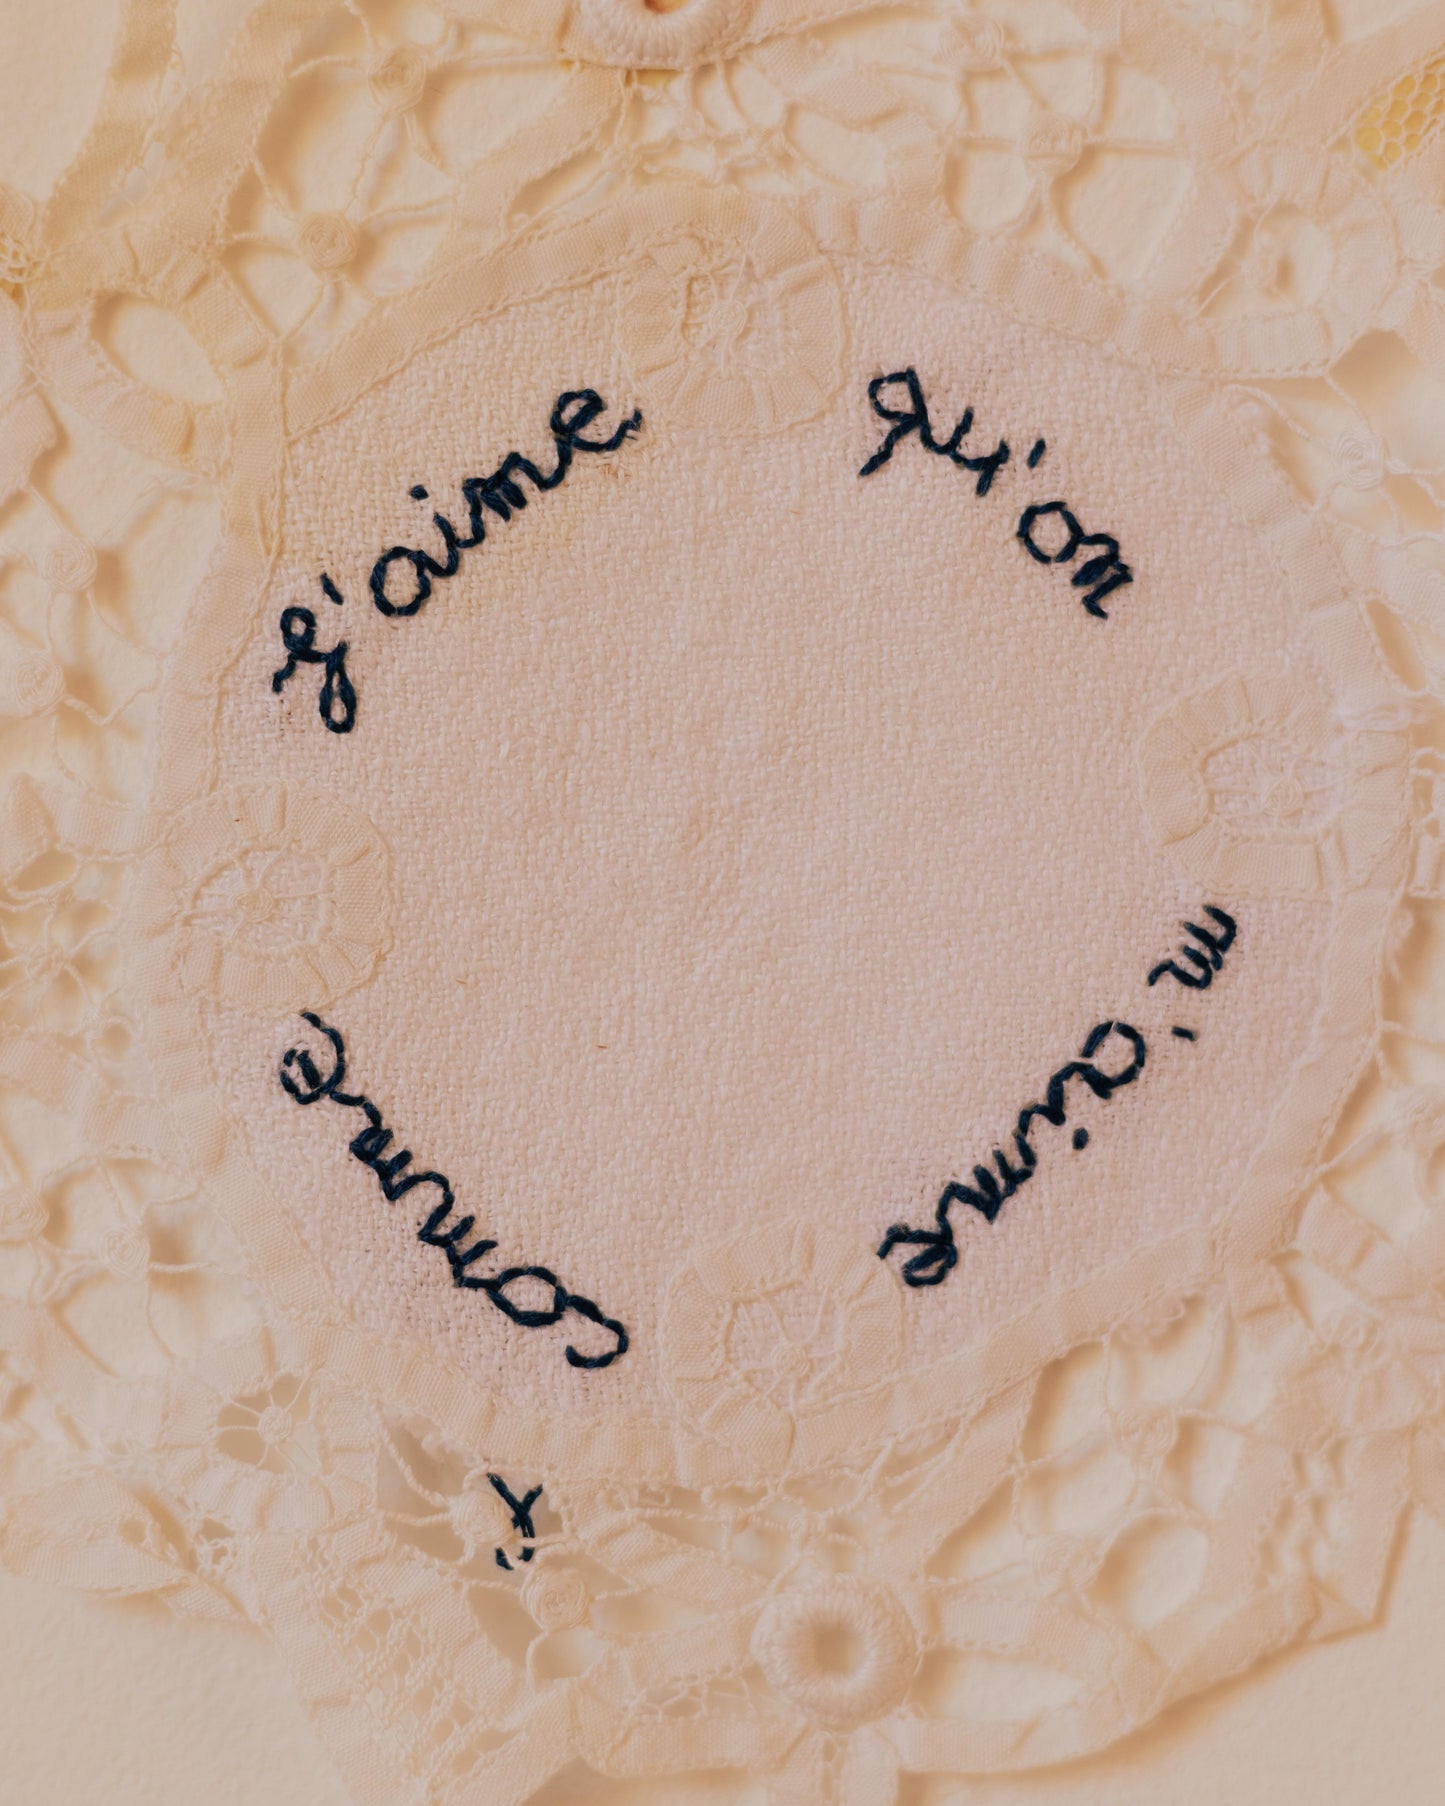 j'aime
qu'on
m'aime
comme